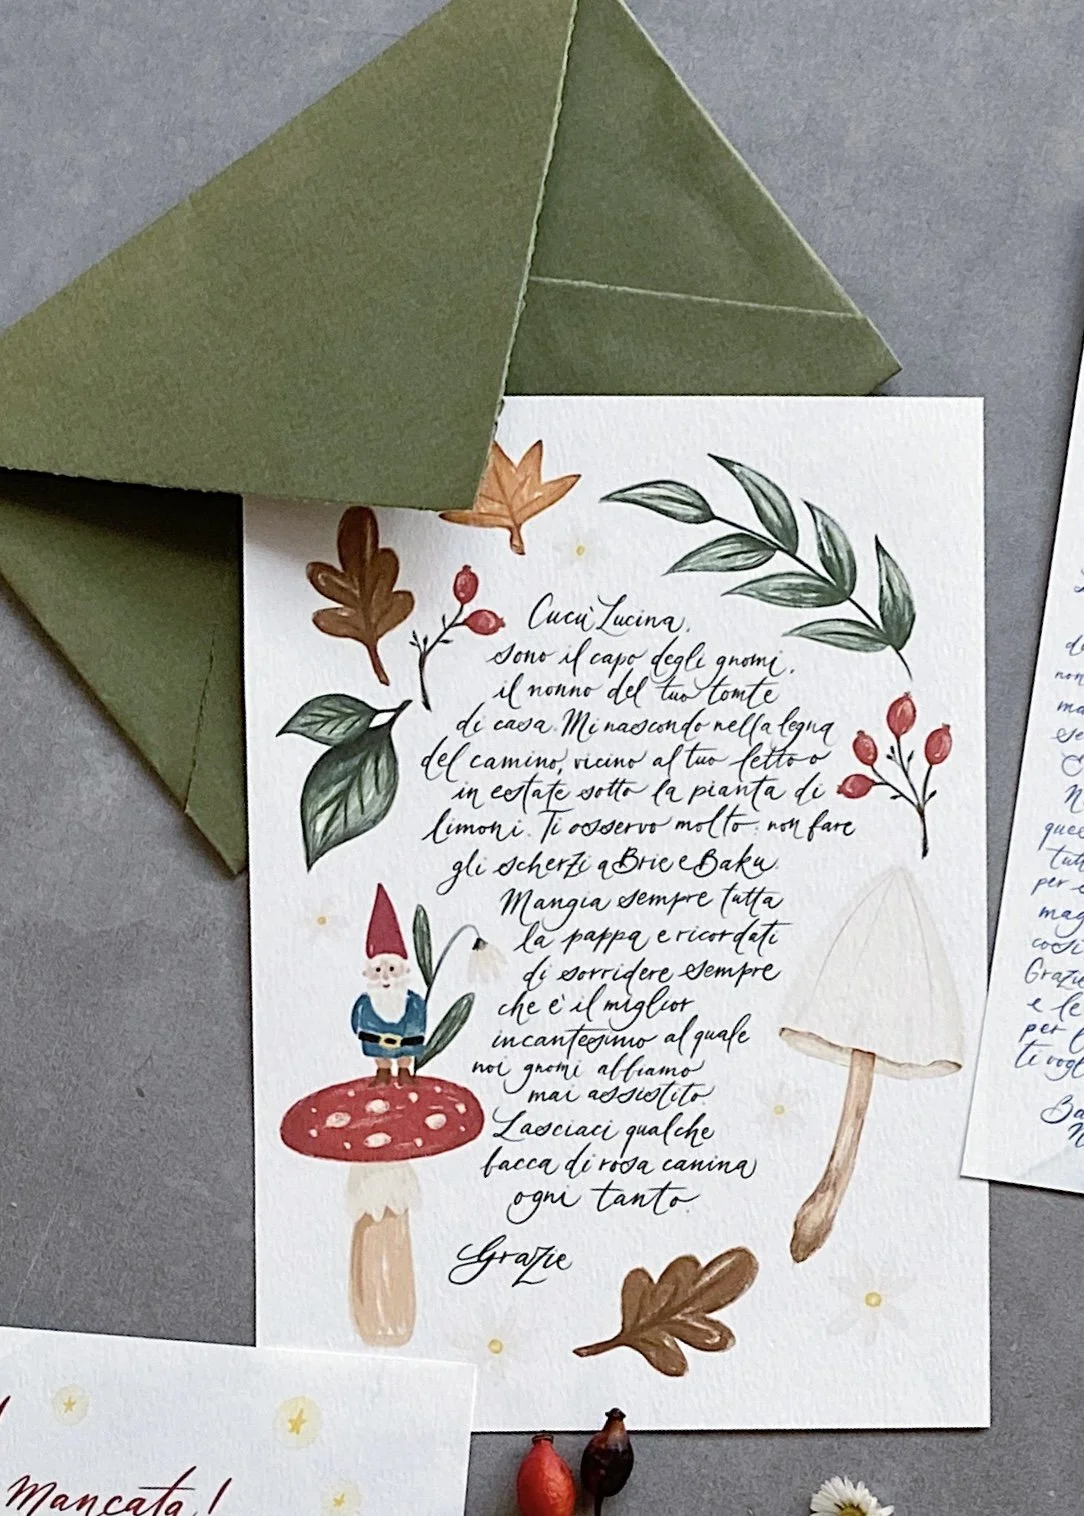 Cucù Lucina,
sono il capo degli gnomi,
il nonno del tuo tomte
di casa. Mi nascondo nella legna
del camino, vicino al tuo letto o
in estate sotto la pianta di
limoni. Ti osservo molto: non fare
gli scherzi a Brie e Baku.
Mangia sempre tutta
la pappa e ricordati
di sorridere sempre
che è il miglior
incantesimo al quale
noi gnomi abbiamo
mai assistito.
Lasciaci qualche
bacca di rosa canina
ogni tanto.
Grazie
Mancata!
non
ma
tut
per e
mag
così
Grazie
e le
per l
ti vogl
Ba
N